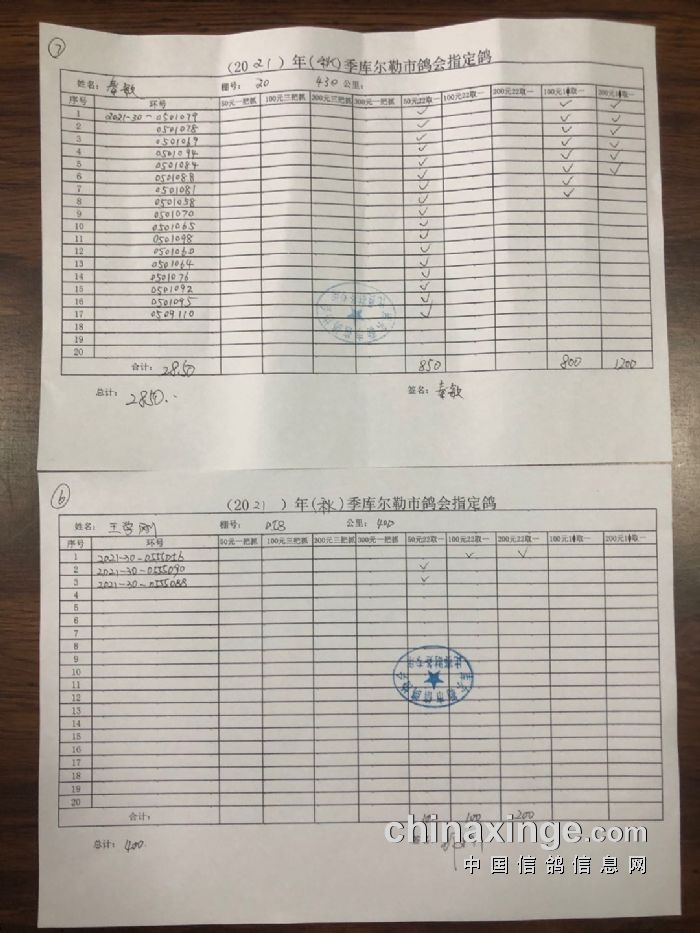 7
(2021)年(秋)季库尔勒市鸽会指定鸽
姓名: 秦敏 棚号: 20 430公里:
序号 环号 50元一把抓 100元三把抓 200元三把抓 300元一把抓 50元22取一 100元22取一 200元22取一 100元1取一 200元1取一
1 2021-30-0501079 ✓ ✓ ✓
2 0501078 ✓ ✓ ✓
3 0501069 ✓ ✓ ✓
4 0501094 ✓ ✓ ✓
5 0501084 ✓ ✓ ✓
6 0501088 ✓ ✓ ✓
7 0501081 ✓ ✓
8 0501058 ✓
9 0501070 ✓
10 0501065 ✓
11 0501098 ✓
12 0501060 ✓
13 0501064 ✓
14 0501076 ✓
15 0501092 ✓
16 0501095 ✓
17 0509110 ✓
18
19
20
合计: 2850 850 800 1200
总计: 2850.. 签名: 秦敏
6
(2021)年(秋)季库尔勒市鸽会指定鸽
姓名: 王学刚 棚号: 018 公里: 400
序号 环号 50元一把抓 100元三把抓 200元三把抓 300元一把抓 50元22取一 100元22取一 200元22取一 100元1取一 200元1取一
1 2021-30-0555016 ✓ ✓
2 2021-30-0555090 ✓
3 2021-30-0555088 ✓
4
5
6
7
8
9
10
11
12
13
14
15
16
17
18
19
20
合计: 100 100 200
总计: 400
chinaxinge.com
中国信鸽信息网